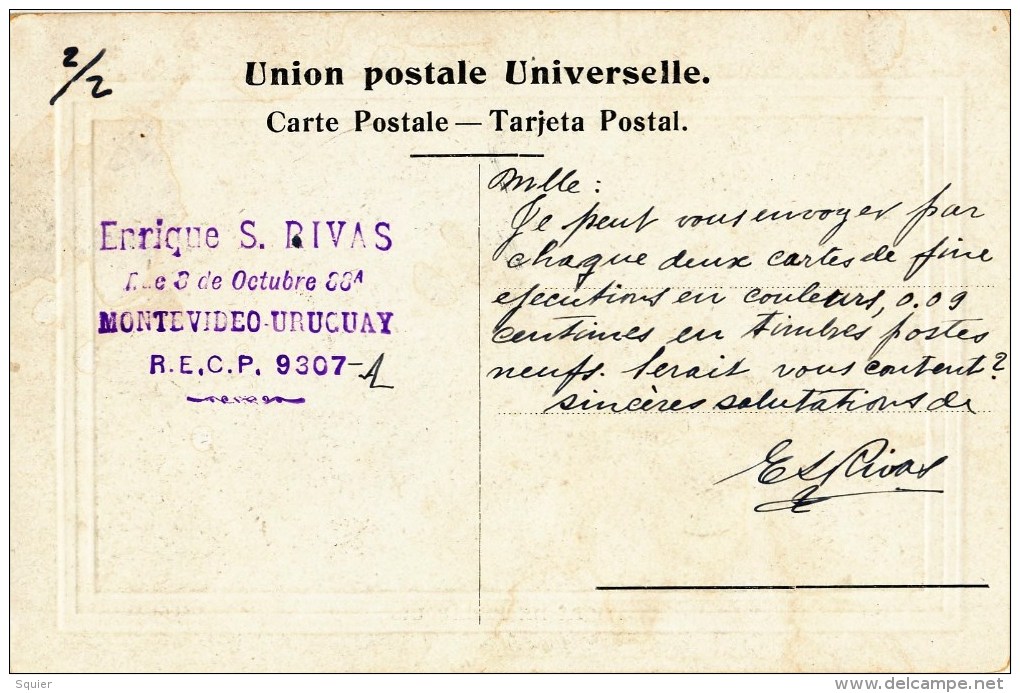 2/2
Union postale Universelle.
Carte Postale — Tarjeta Postal.
Enrique S. RIVAS
8 de Octubre 88A
MONTEVIDEO-URUGUAY
R.E.C.P. 9307-A
Mlle:
Je peut vous envoyer par
chaque deux cartes de fine
ejecutions en couleurs, 0.09
centimes en timbres postes
neufs. Serait vous content?
sincères salutations de
E S Rivas
Squier
www.delcampe.net